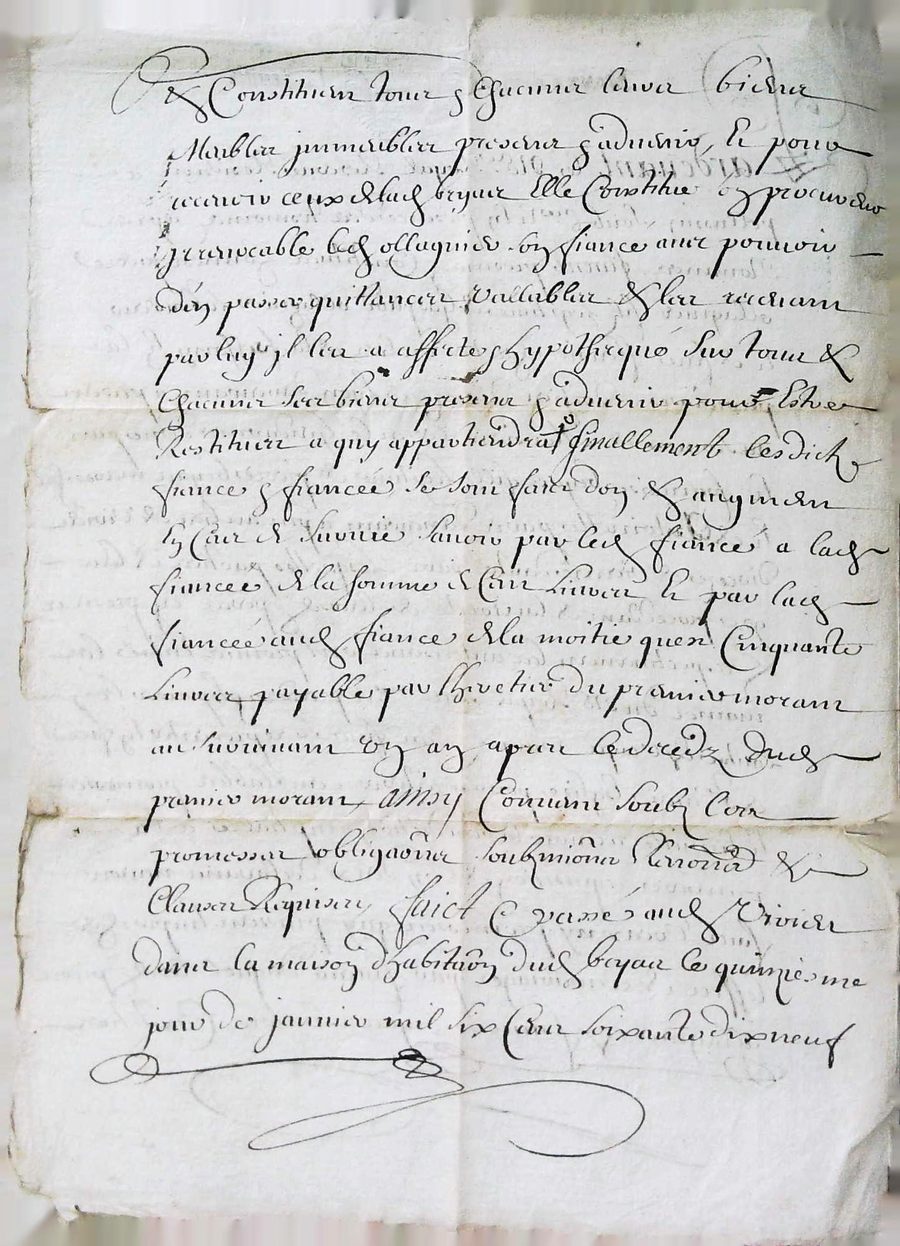 & Constituent tous & Chacuns leurs biens
Meubles immeubles presens & aduenir, Et pour
receuoir ceux de lad Elle Constitue son procureur
irreuocable led ollagnier son fiance auec pouuoir
d'en passer quittances Vallables & les receuant
par luy il les a affectes & hypothequé sur tous &
Chacuns ses biens presens & aduenir pour Estre
Restitues a quy appartiendra finallement lesdictz
fiance & fiancée se sont faict don & augment
En Cas de suruie sauoir par led fiancé a lad
fiancee de la somme de Cent Liures Et par lad
fiancée aud fiance de la moitie quest Cinquante
Liures payable par l'heretier du premier morant
au suruiuant un an apres le decedz dud
premier morant, ainsy Conuenu soubz leurs
promesses obligaõns soubzmiõns Renonciaõns &
Clauses Requises, faict & passé aud Viuier
dans la maison d'habitaõn dud le quinziesme
jour de januier mil six Cens soixante dix neuf